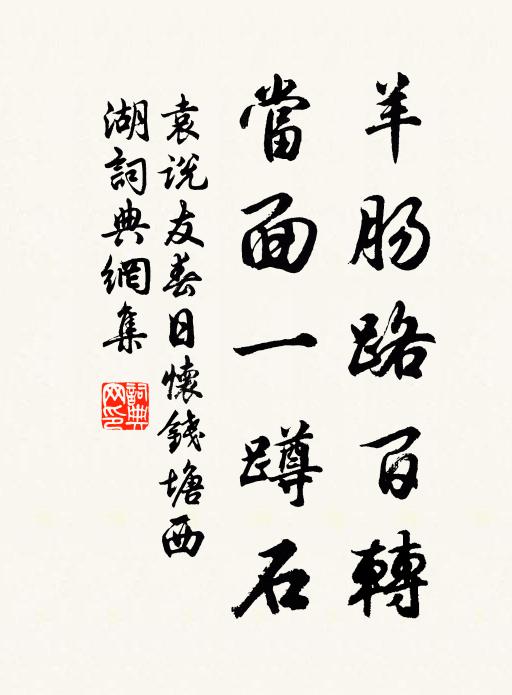 羊腸路百轉
當面一蹲石
袁説友春日懷錢塘西
湖詞典網集
詞典
网印